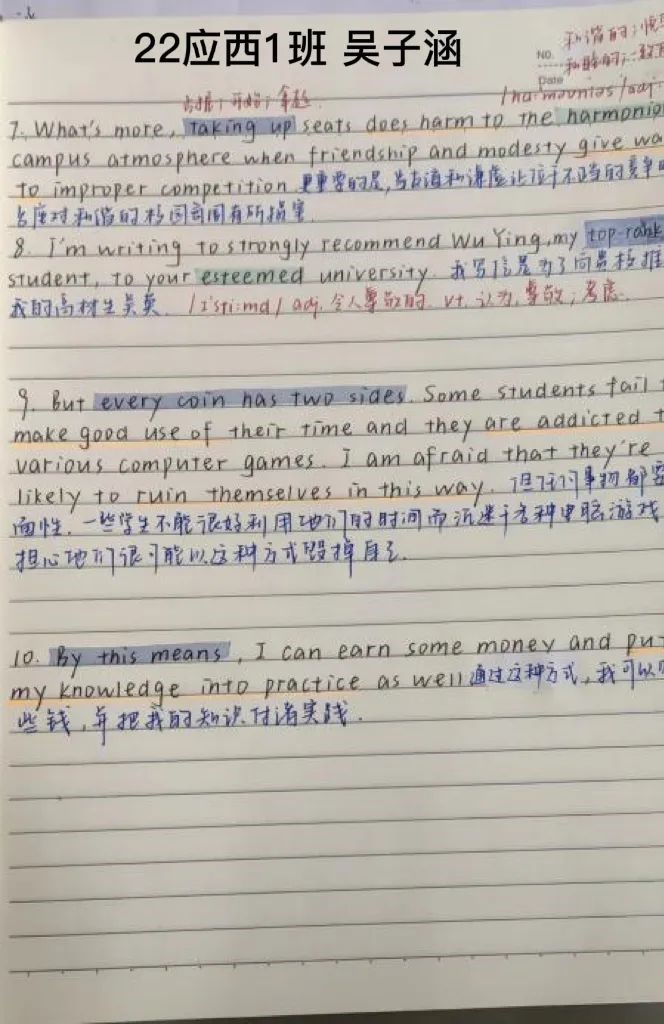 22应西1班 吴子涵
和谐的；
No.
和睦的；一致的
Date
占据；开始；拿起
/ha:'mounies/adj.
7. What's more, taking up seats does harm to the harmonio
campus atmosphere when friendship and modesty give wa
to improper competition 更重要的是,当友谊和谦虚让位于不正当的竞争时
占座对和谐的校园氛围有所损害.
8. I'm writing to strongly recommend Wu Ying, my top-rank
student, to your esteemed university. 我写信是为了向贵校推
我的高材生吴英. /I'sti:md/ adj. 令人尊敬的. vt. 认为,尊敬；考虑.
9. But every coin has two sides. Some students fail t
make good use of their time and they are addicted t
various computer games. I am afraid that they're
likely to ruin themselves in this way. 但任何事物都
面性. 一些学生不能很好利用他们的时间而沉迷于各种电脑游戏
担心他们很可能以这种方式毁掉自己.
10. By this means, I can earn some money and pu
my knowledge into practice as well 通过这种方式,我可以
些钱,并把我的知识付诸实践.